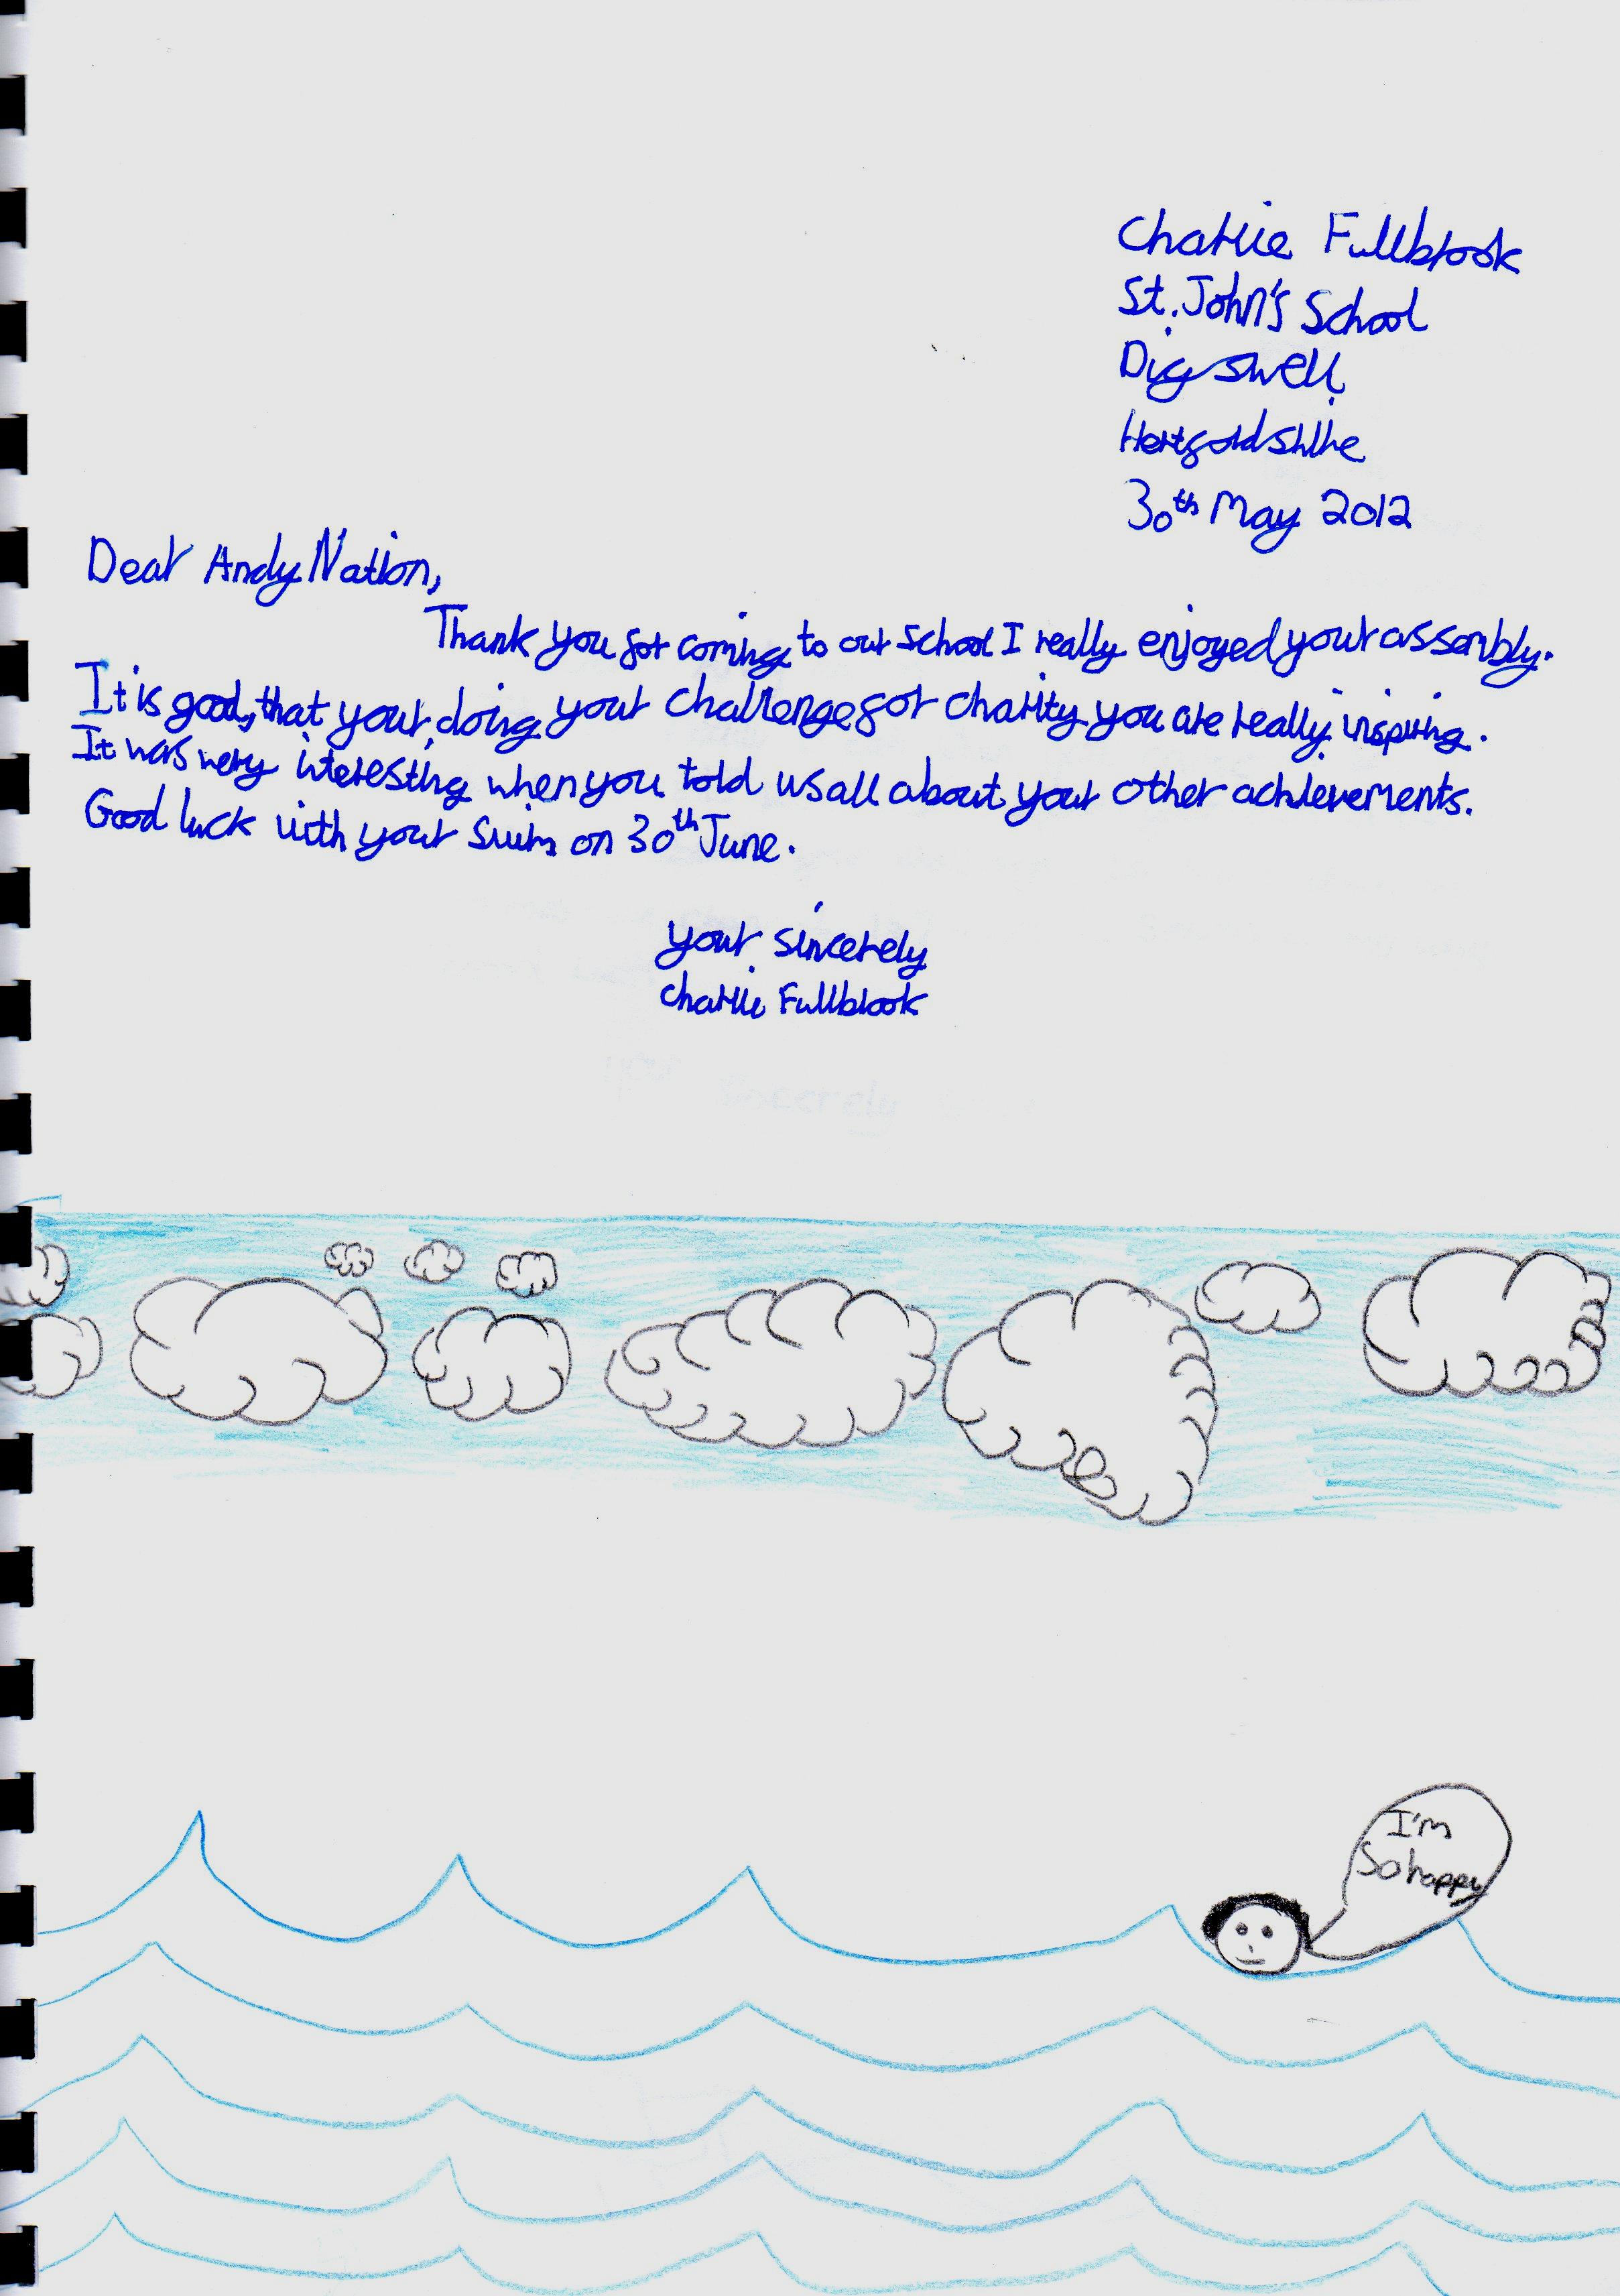 Charlie Fullbrook
St. John's School
Digswell
Hertfordshire
30th May 2012
Dear Andy Nation,
Thank you for coming to our school I really enjoyed your assembly.
It is good, that your, doing your challenge for charity you are really inspiring.
It was very interesting when you told us all about your other achievements.
Good luck with your swim on 30th June.
your sincerely
Charlie Fullbrook
I'm
So happy